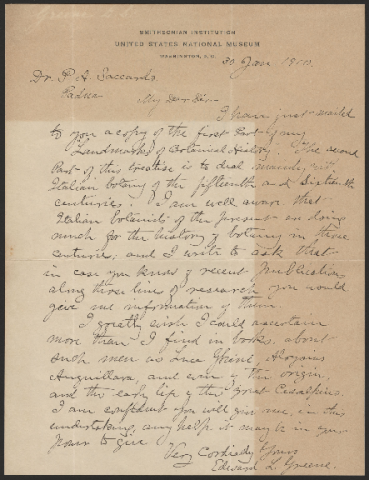 Greene E. L.
SMITHSONIAN INSTITUTION
UNITED STATES NATIONAL MUSEUM
WASHINGTON, D.C.
30 Jan 1910.
Dr. P. A. Saccardo
Padua
My Dear Sir:-
I have just mailed
to you a copy of the first Part of my
Landmarks of Botanical History. The second
Part of this treatise is to deal mainly with
Italian botany of the fifteenth and sixteenth
centuries. I am well aware that
Italian botanists of the present are doing
much for the history of botany in those
centuries; and I write to ask that
in case you know of recent publications
along those lines of research you would
give me information of them.
I greatly wish I could ascertain
more than I find in books, about
such men as Luca Ghini, Aloysius
Anguillara, and even the origin
and the early life of the great Cesalpino.
I am confident you will give me, in this
undertaking, any help it may be in your
power to give.
Very Cordially Yours
Edward L. Greene.